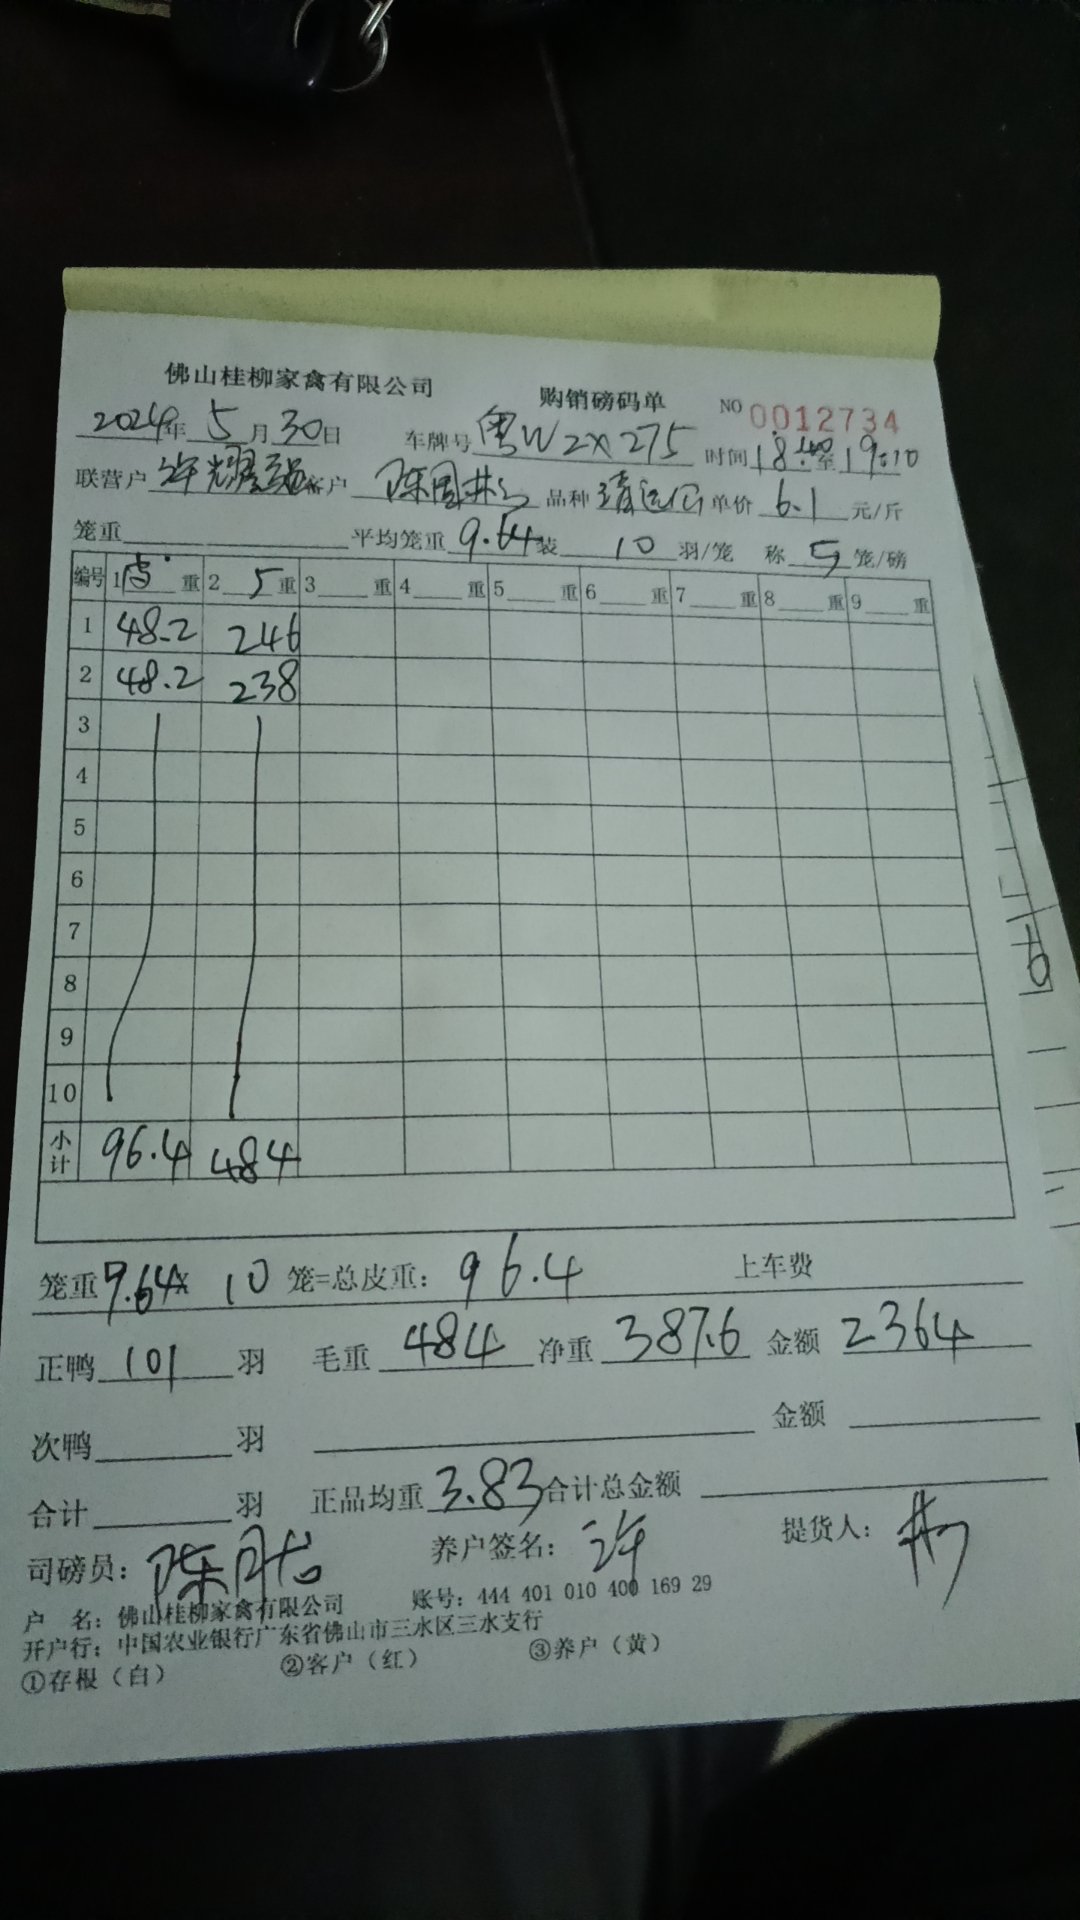 佛山桂柳家禽有限公司 购销磅码单 NO 0012734
2024年 5 月 30 日 车牌号 粤W2X275 时间 18:40 至 19:10
联营户 许耀强 客户 陈国彬 品种 清远公 单价 6.1 元/斤
笼重 平均笼重 9.64 装 10 羽/笼 称 5 笼/磅
编号 1 皮 重 2 5 重 3 重 4 重 5 重 6 重 7 重 8 重 9 重
1 48.2 246
2 48.2 238
3
4
5
6
7
8
9
10
小计 96.4 484
笼重 9.64 x 10 笼=总皮重: 96.4 上车费
正鸭 101 羽 毛重 484 净重 387.6 金额 2364
次鸭 羽 金额
合计 羽 正品均重 3.83 合计总金额
司磅员: 陈 养户签名: 许 提货人:
户 名: 佛山桂柳家禽有限公司 账号: 444 401 010 400 169 29
开户行: 中国农业银行广东省佛山市三水区三水支行
①存根（白） ②客户（红） ③养户（黄）